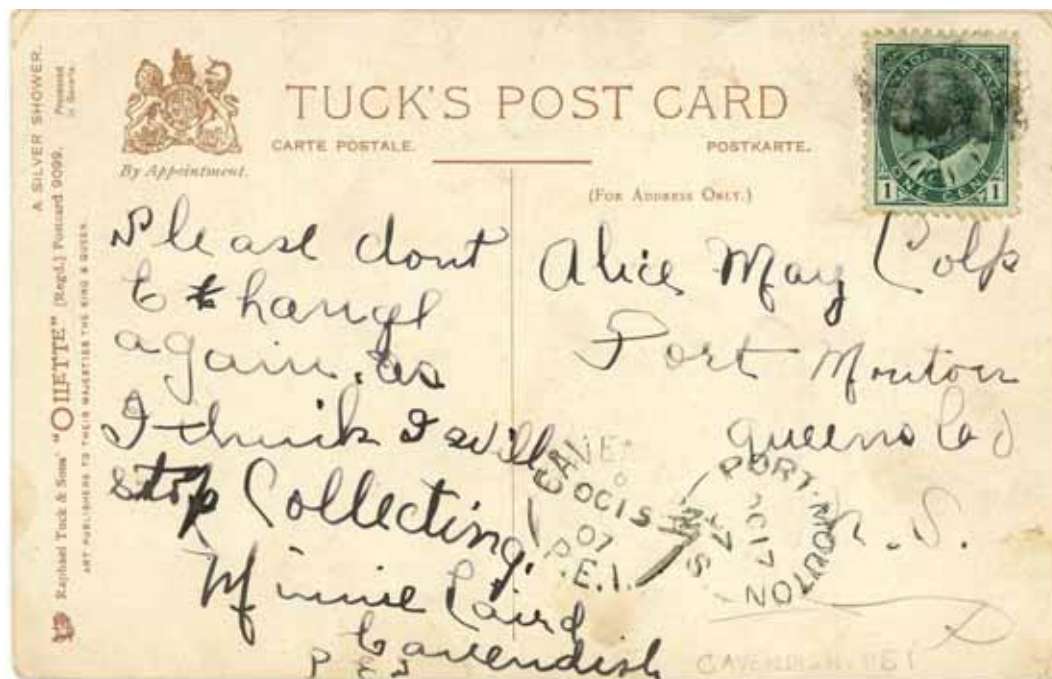 A SILVER SHOWER.
Raphael Tuck & Sons' "OILETTE" [Regd.] Postcard 9099.
Processed in Bavaria.
ART PUBLISHERS TO THEIR MAJESTIES THE KING & QUEEN.
By Appointment.
TUCK'S POST CARD
CARTE POSTALE.
POSTKARTE.
(FOR ADDRESS ONLY.)
CANADA POSTAGE
1 ONE CENT 1
Please dont
Exhange
again. as
I think I will
stop Collecting.
Minnie Laird
Cavendish
P E I
Alice May Colp
Port Mouton
Queens Co
N.S.
CAVEN
OC 15
07
P.E.I.
PORT-MOUTON
OC 17
07
N.S.
CAVENDISH PEI